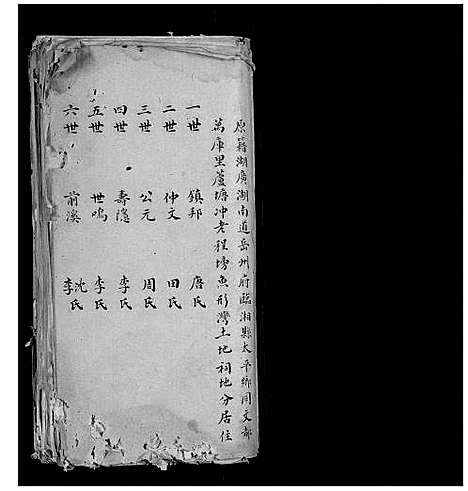 原籍湖廣湖南道岳州府臨湘縣太平鄉同文都
萬庫里蘆塘冲老程塝魚形灣土地祠地分居住
一世 鎮邦 唐氏
二世 仲文 田氏
三世 公元 周氏
四世 壽隱 李氏
五世 世鳴 李氏
六世 前溪 沈李氏